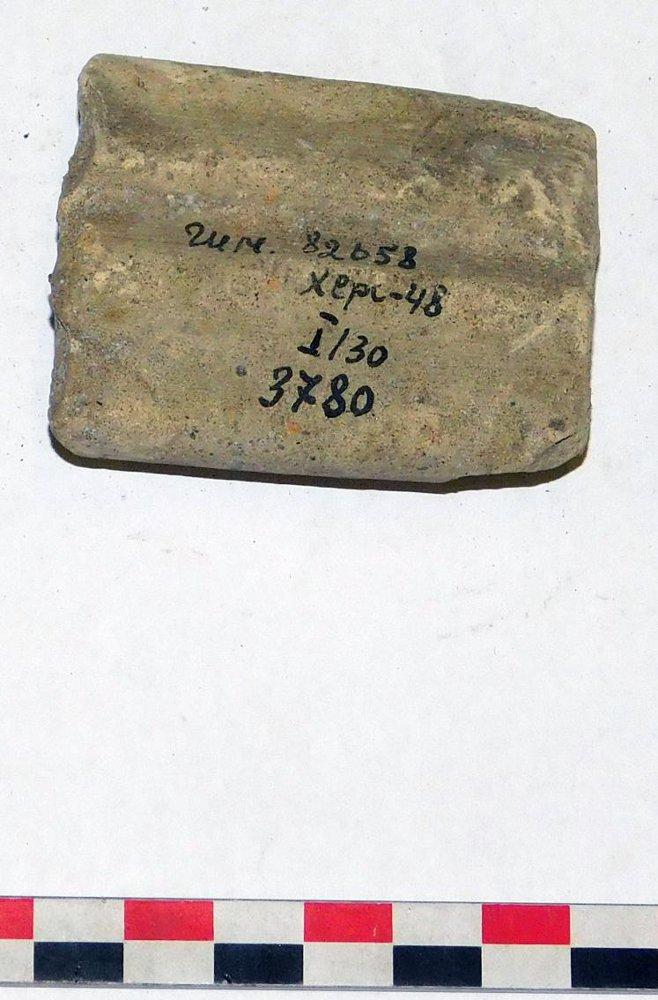 гим. 82658
Херс-48
I/30
3780